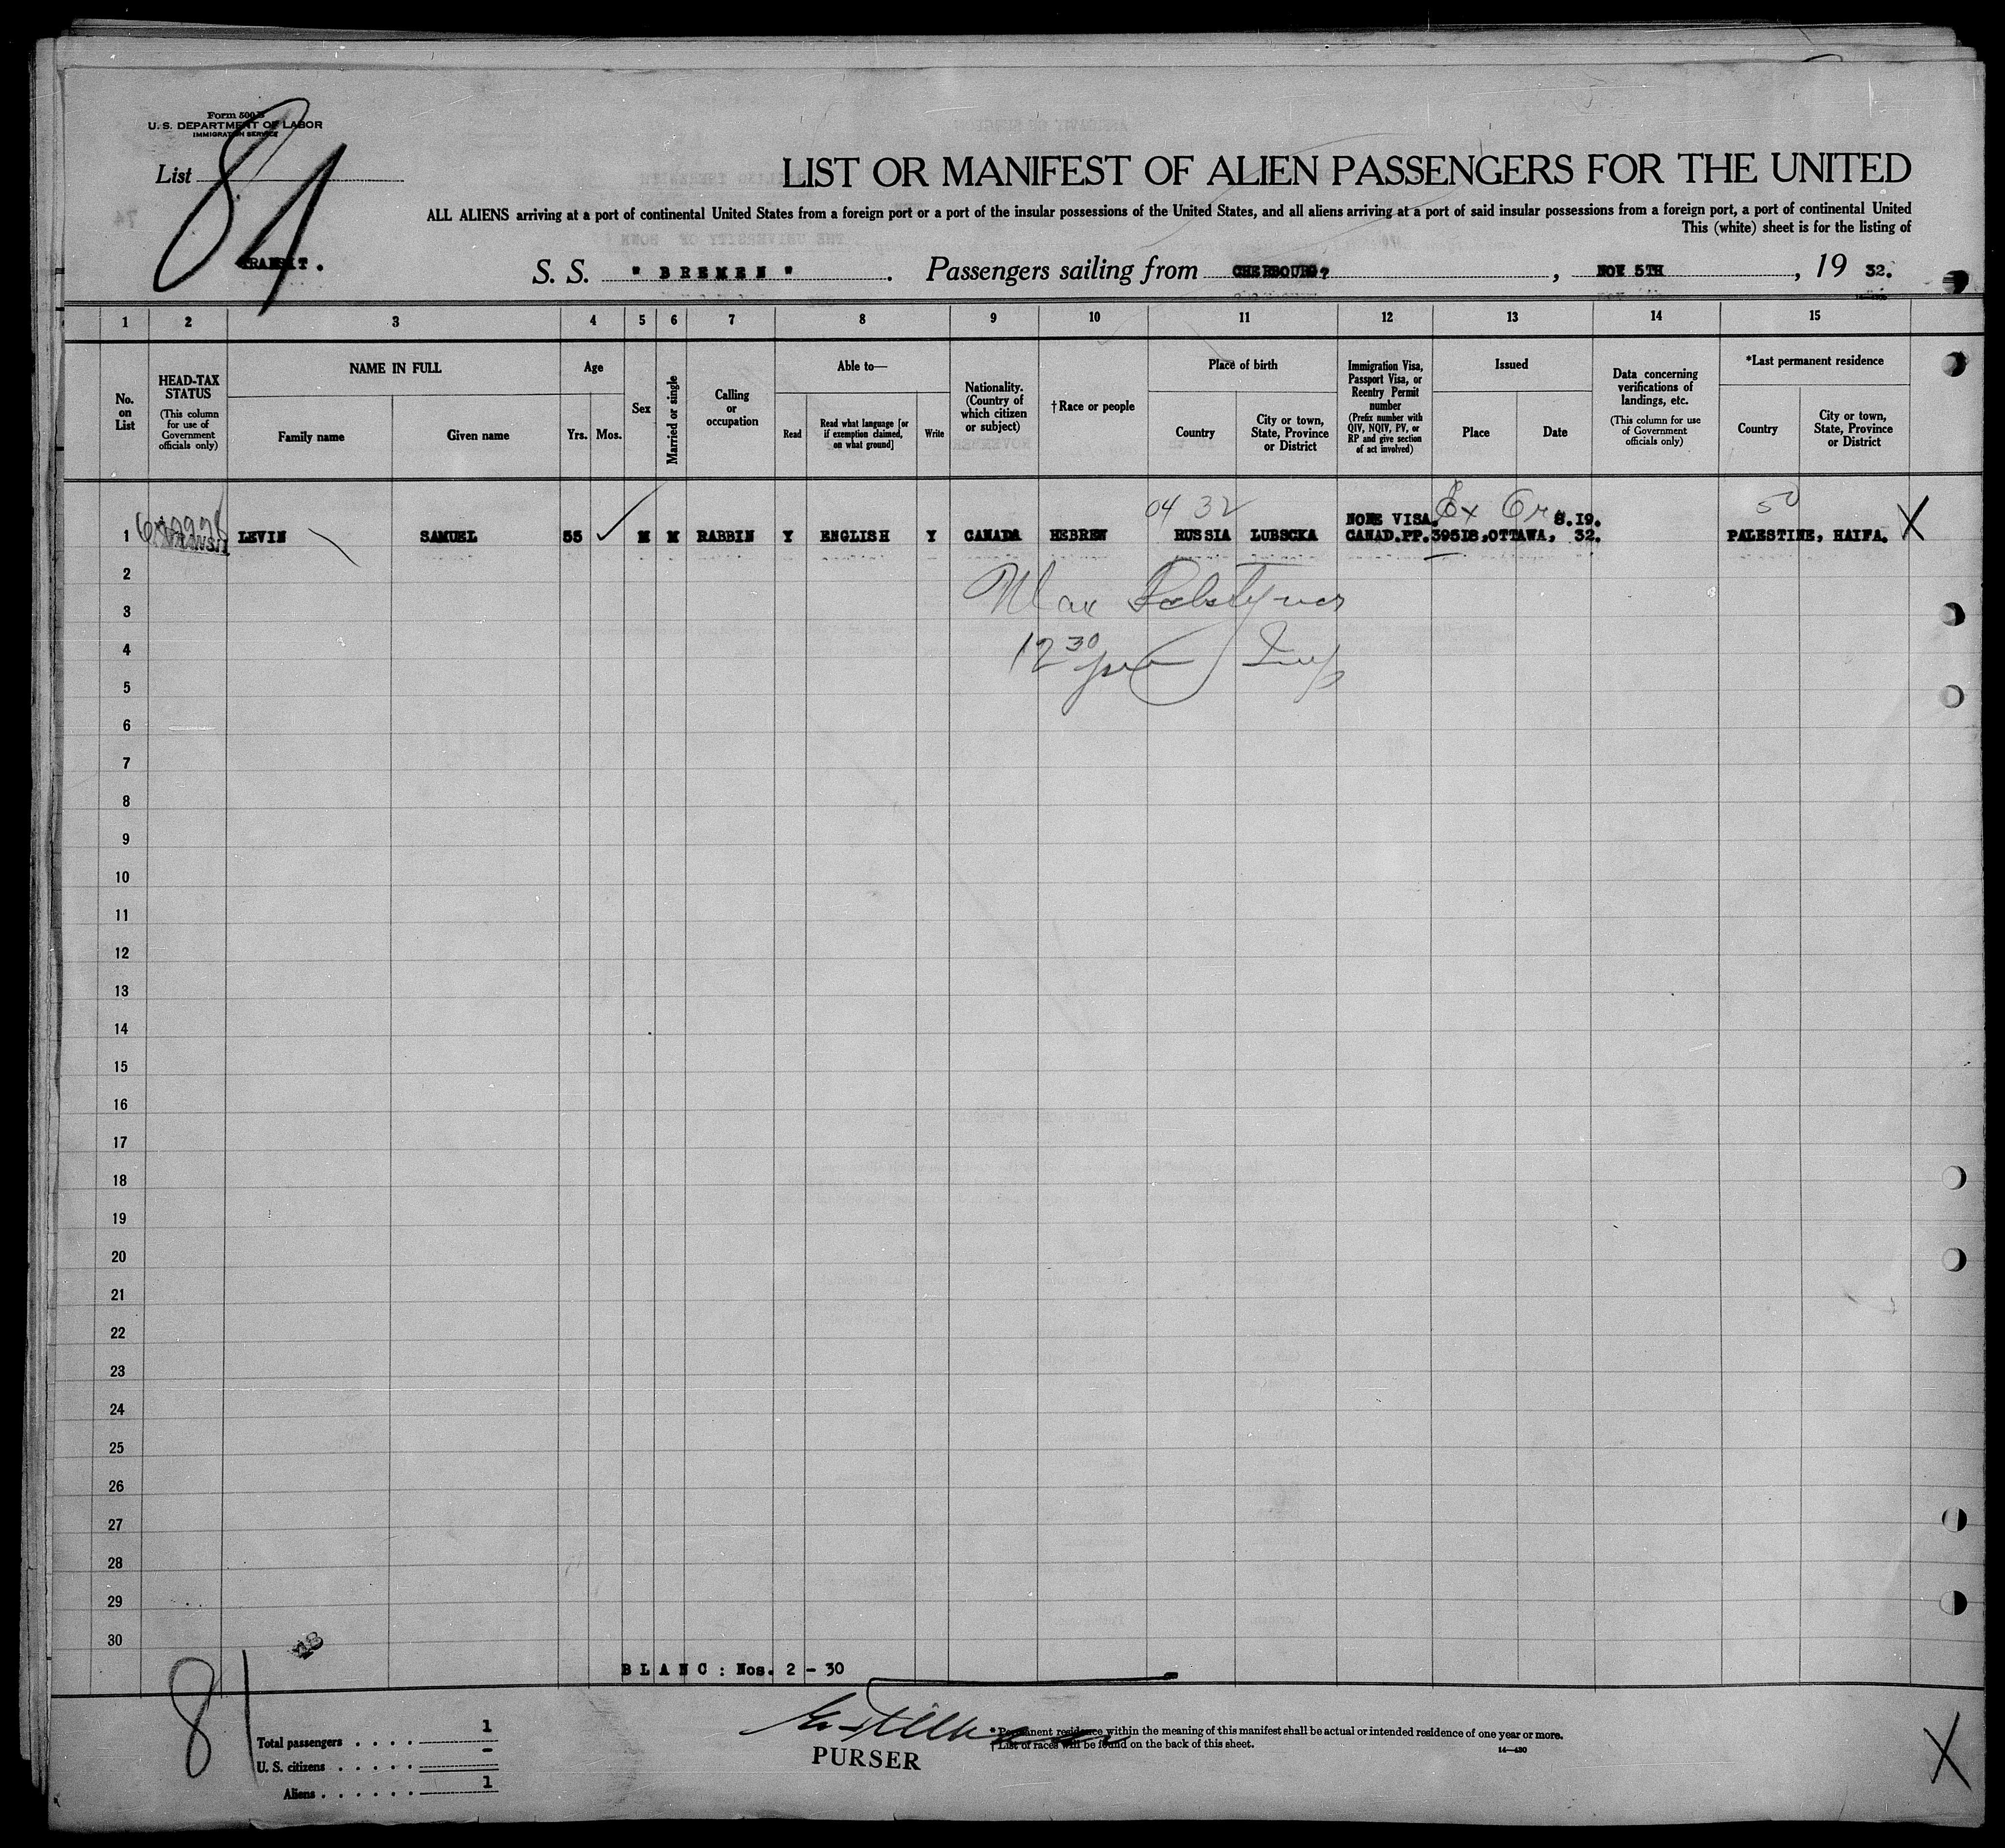 Form 500 B
U. S. DEPARTMENT OF LABOR
IMMIGRATION SERVICE
List 81
LIST OR MANIFEST OF ALIEN PASSENGERS FOR THE UNITED
ALL ALIENS arriving at a port of continental United States from a foreign port or a port of the insular possessions of the United States, and all aliens arriving at a port of said insular possessions from a foreign port, a port of continental United
This (white) sheet is for the listing of
TRANSIT.
S. S. " BREMEN ". Passengers sailing from CHERBOURG, NOV 5TH, 19 32.
1 2 3 4 5 6 7 8 9 10 11 12 13 14 15
No. on List
HEAD-TAX STATUS
(This column for use of Government officials only)
NAME IN FULL
Family name
Given name
Age
Yrs. Mos.
Sex
Married or single
Calling or occupation
Able to—
Read
Read what language [or if exemption claimed, on what ground]
Write
Nationality. (Country of which citizen or subject)
†Race or people
Place of birth
Country
City or town, State, Province or District
Immigration Visa, Passport Visa, or Reentry Permit number
(Prefix number with QIV, NQIV, PV, or RP and give section of act involved)
Issued
Place
Date
Data concerning verifications of landings, etc.
(This column for use of Government officials only)
*Last permanent residence
Country
City or town, State, Province or District
04 32
50
NONE VISA. Ex 8.19.
1 TRANSIT LEVIN SAMUEL 55 M M RABBIN Y ENGLISH Y CANADA HEBREW RUSSIA LUBSCKA CANAD.PP.39518,OTTAWA, 32. PALESTINE, HAIFA. X
2
Max
3
4
12 30
5
6
7
8
9
10
11
12
13
14
15
16
17
18
19
20
21
22
23
24
25
26
27
28
29
30
BLANC: Nos. 2 - 30
81
Total passengers . . . . 1
U. S. citizens . . . . . -
Aliens . . . . . . 1
PURSER
* Permanent residence within the meaning of this manifest shall be actual or intended residence of one year or more.
† List of races will be found on the back of this sheet.
14—430
X